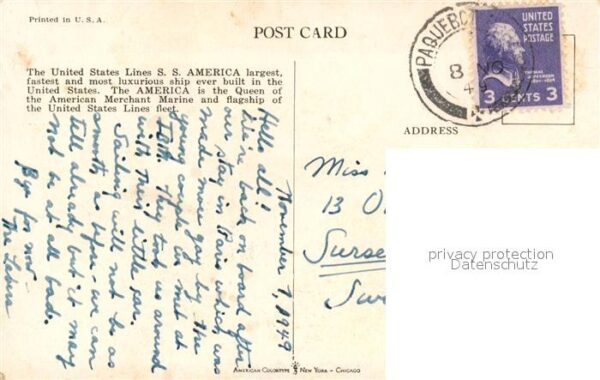 Printed in U. S. A.
POST CARD
The United States Lines S. S. AMERICA largest,
fastest and most luxurious ship ever built in the
United States. The AMERICA is the Queen of
the American Merchant Marine and flagship of
the United States Lines fleet.
November 7, 1949
Hello all!
We're back on board after
our stay in Paris which was
made more gay by the
young couple we met at
They took us around
with their little car.
Sailing will not be as
smooth as before - we can
tell already but it may
not be at all bad.
Bye for now -
The
PAQUEBO
8 NO
49
UNITED
STATES
POSTAGE
THOMAS
JEFFERSON
3 CENTS 3
ADDRESS
Miss
13 O
Surse
Su
privacy protection
Datenschutz
AMERICAN COLORTYPE NEW YORK - CHICAGO